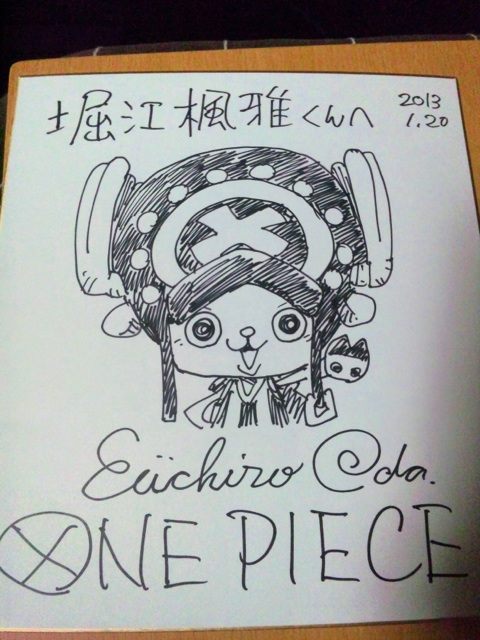 堀江楓雅くんへ
2013
1.20
Eiichiro Oda.
ONE PIECE